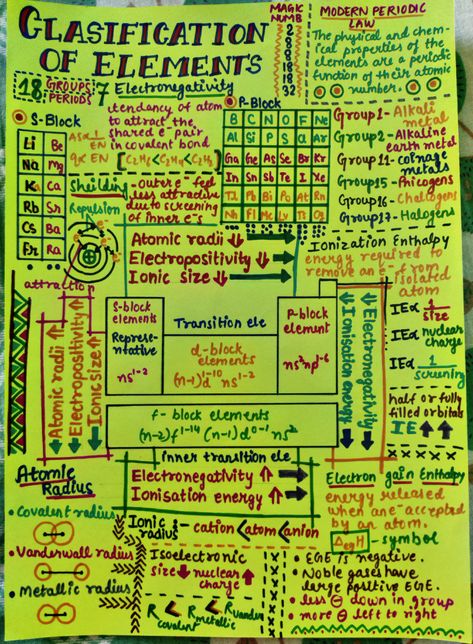 CLASIFICATION
OF ELEMENTS
MAGIC
NUMB
2
8
8
18
18
32
MODERN PERIODIC
LAW
The physical and chem-
cal properties of the
elements are a periodic
function of their atomic
number.
18 GROUPS 7
PERIODS
Electronegativity
tendancy of atom
to attract the
shared e⁻ pair
in covalent bond
[C₂H₆ < C₂H₄ < C₂H₂]
S-Block
Li Be
Na Mg
K Ca
Rb Sr
Cs Ba
Fr Ra
P-Block
B C N O F Ne
Al Si P S Ar
Ga Ge As Se Br Kr
In Sn Sb Te I Xe
Tl Pb Bi Po At Rn
Nh Fl Mc Lv Ts Og
Group1- Alkali
metal
Group2- Alkaline
earth metal
Group11- coinage
metals
Group15- Phicogens
Group16- Chalcogens
Group17- Halogens
Sheilding - outer e⁻ feel
less attractive
due to screening
of inner e⁻s
Repulsion
attraction
Atomic radii ↓
Electropositivity ↓
Ionic size ↓
Ionization Enthalpy
energy required to
remove an e⁻ from
isolated
atom
IE∝ 1/size
IE∝ nuclear
charge
IE∝ 1/screening
half or fully
filled orbitals
IE ↑ ↑
Atomic radii ↑
Electropositivity ↑
Ionic size ↑
S-block
elements
Represe-
ntative
ns¹⁻²
Transition ele
d-block
elements
(n-1)d¹⁻¹⁰ ns¹⁻²
P-block
element
ns²np¹⁻⁶
↓ Ionisation energy
↓ Electronegativity
f- block elements
(n-2)f¹⁻¹⁴ (n-1)d⁰⁻¹ ns²
inner transition ele
Electronegativity ↑
Ionisation energy ↑
Atomic
Radius
• Covalent radius
• Vanderwall radius
• Metallic radius
Ionic :- cation < atom < anion
radius
Isoelectronic
size ↓ nuclear ↑
charge
R covalent < R metallic < R vander
Electron gain Enthalpy
energy released
when one accepted
by an atom.
ΔegH - symbol
• EGE is negative.
• Noble gases have
large positive EGE.
• less ⊖ down in group
• more ⊖ left to right